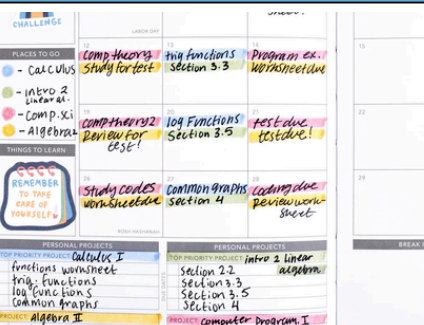 CHALLENGE
LABOR DAY
PLACES TO GO
- Calculus
- intro 2
linear al.
- Comp.sci
- Algebra2
THINGS TO LEARN
REMEMBER
TO TAKE
CARE OF
YOURSELF
12
comp theory
Study for test
13
trig functions
section 3.3
14
Program ex.
worksheet due
15
19
comp theory 2
Review for
test!
20
log Functions
Section 3.5
21
test due
test due!
22
26
Study codes
worksheet due
ROSH HASHANAH
27
common graphs
section 4
28
coding due
Review work-
sheet
29
PERSONAL PROJECTS
TOP PRIORITY PROJECT: Calculus I
functions worksheet
trig. functions
log functions
Common graphs
PROJECT: algebra II
DUE DATES
PERSONAL PROJECTS
TOP PRIORITY PROJECT: intro 2 linear
algebra
Section 2.2
Section 3.3
Section 3.5
Section 4
PROJECT: computer Program. I
BREAK